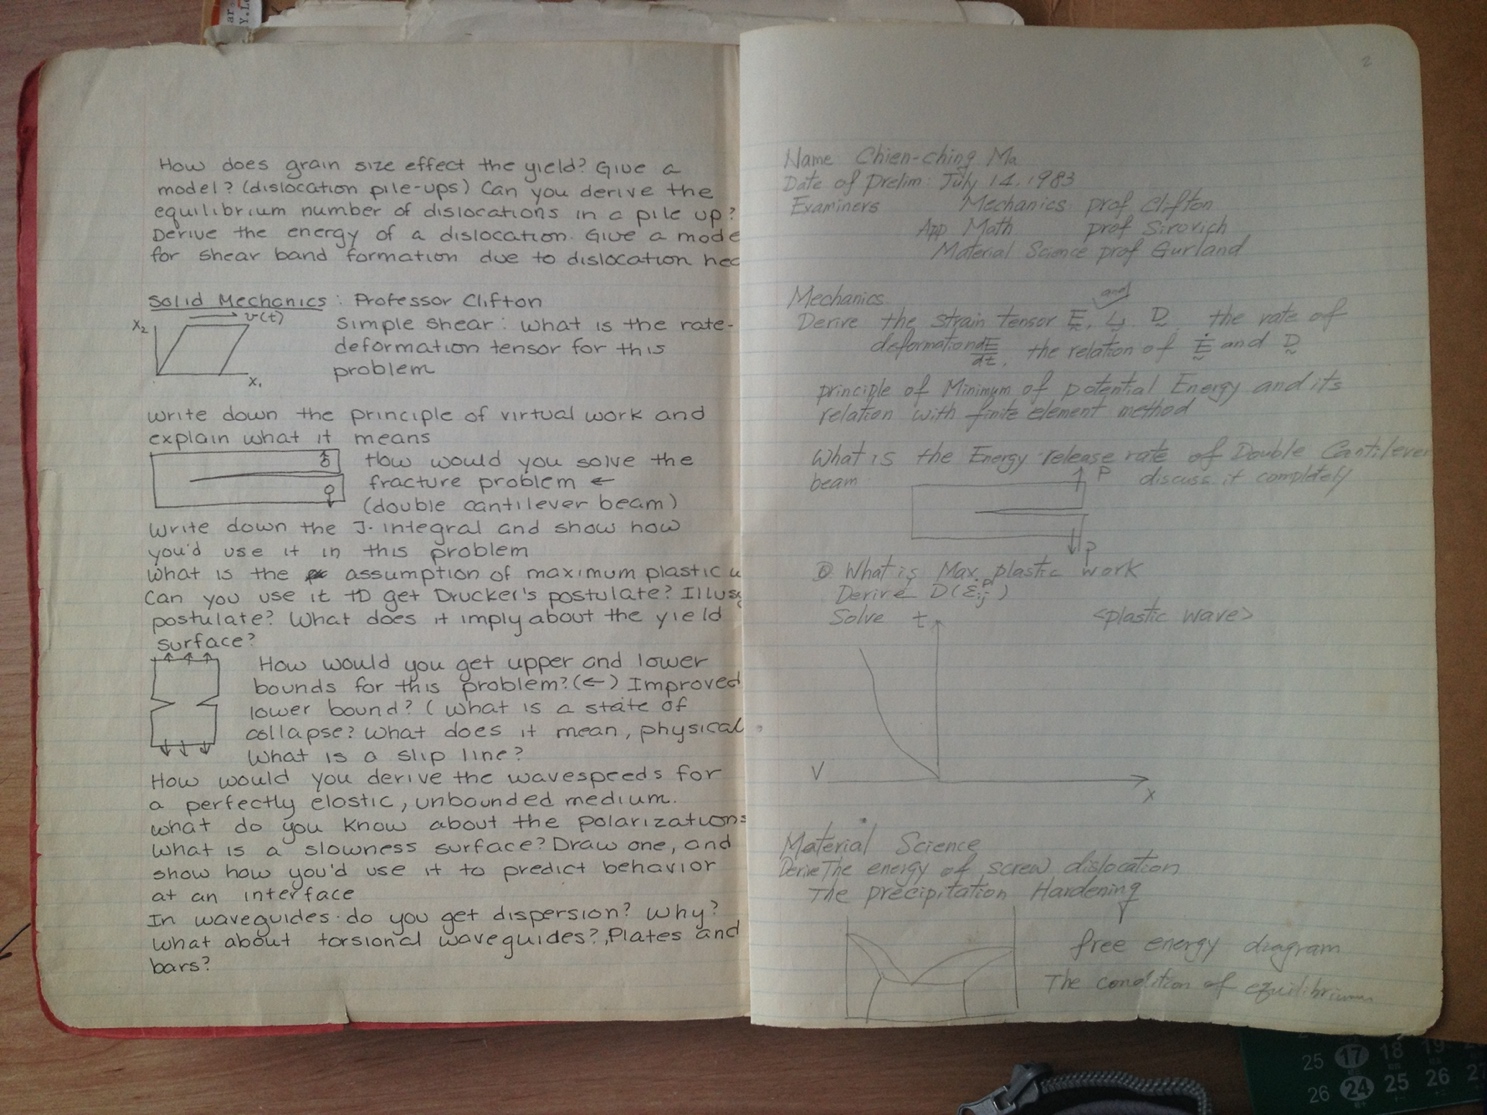 How does grain size effect the yield? Give a
model? (dislocation pile-ups) Can you derive the
equilibrium number of dislocations in a pile up?
Derive the energy of a dislocation. Give a mode
for shear band formation due to dislocation
Solid Mechanics : Professor Clifton
X2
v(t)
X1
simple shear: what is the rate-
deformation tensor for this
problem
write down the principle of virtual work and
explain what it means
How would you solve the
fracture problem ←
(double cantilever beam)
Write down the J-integral and show how
you'd use it in this problem
What is the assumption of maximum plastic
Can you use it to get Drucker's postulate?
postulate? What does it imply about the yield
surface?
How would you get upper and lower
bounds for this problem? (←) Improved
lower bound? ( What is a state of
collapse? What does it mean, physical
What is a slip line?
How would you derive the wavespeeds for
a perfectly elastic, unbounded medium.
What do you know about the polarizations
What is a slowness surface? Draw one, and
show how you'd use it to predict behavior
at an interface
In waveguides do you get dispersion? Why?
What about torsional waveguides? Plates and
bars?
2
Name Chien-ching Ma
Date of Prelim: July 14, 1983
Examiners Mechanics prof Clifton
App. Math prof Sirovich
Material Science prof Gurland
Mechanics
and
Derive the strain tensor E, L, D, the rate of
deformation dE/dt, the relation of Ė and D
principle of Minimum of potential Energy and its
relation with finite element method
What is the Energy release rate of Double Cantilever
beam P discuss it completely
P
What is Max. plastic work
Derive D(ε̇ᵖij)
Solve t <plastic wave>
V
x
Material Science
Derive The energy of screw dislocation
The precipitation Hardening
free energy diagram
The condition of equilibrium
25 17 18 19
26 24 25 26 27